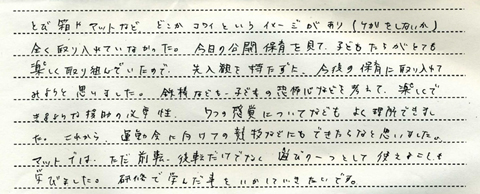 とび箱やマットなど どこか コワイというイメージがあり（ケガをしないか）
全く取り入れていなかった。今日の公開保育を見て、子どもたちがとても
楽しく取り組んでいたので、先入観を持たずに、今後の保育に取り入れて
みようと思いました。鉄棒なども、子どもの恐怖心などを考えて、楽しくで
きるような援助の必要性、7つの感覚についてなども よく理解できまし
た。これから、運動会に向けての製作などにもできたらなと思いました。
マットでは、ただ前転、後転だけでなく 遊びの一つとして使えることも
学びました。研修で学んだ事をいかしていきたいです。